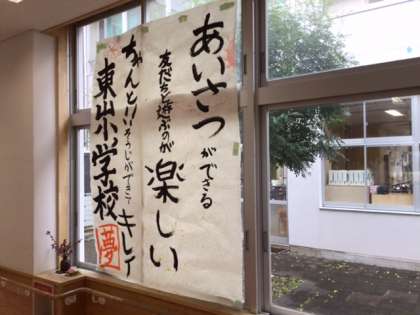 あいさつができる
友だちと遊ぶのが楽しい
ちゃんと!!そうじができてキレイ
東山小学校
夢